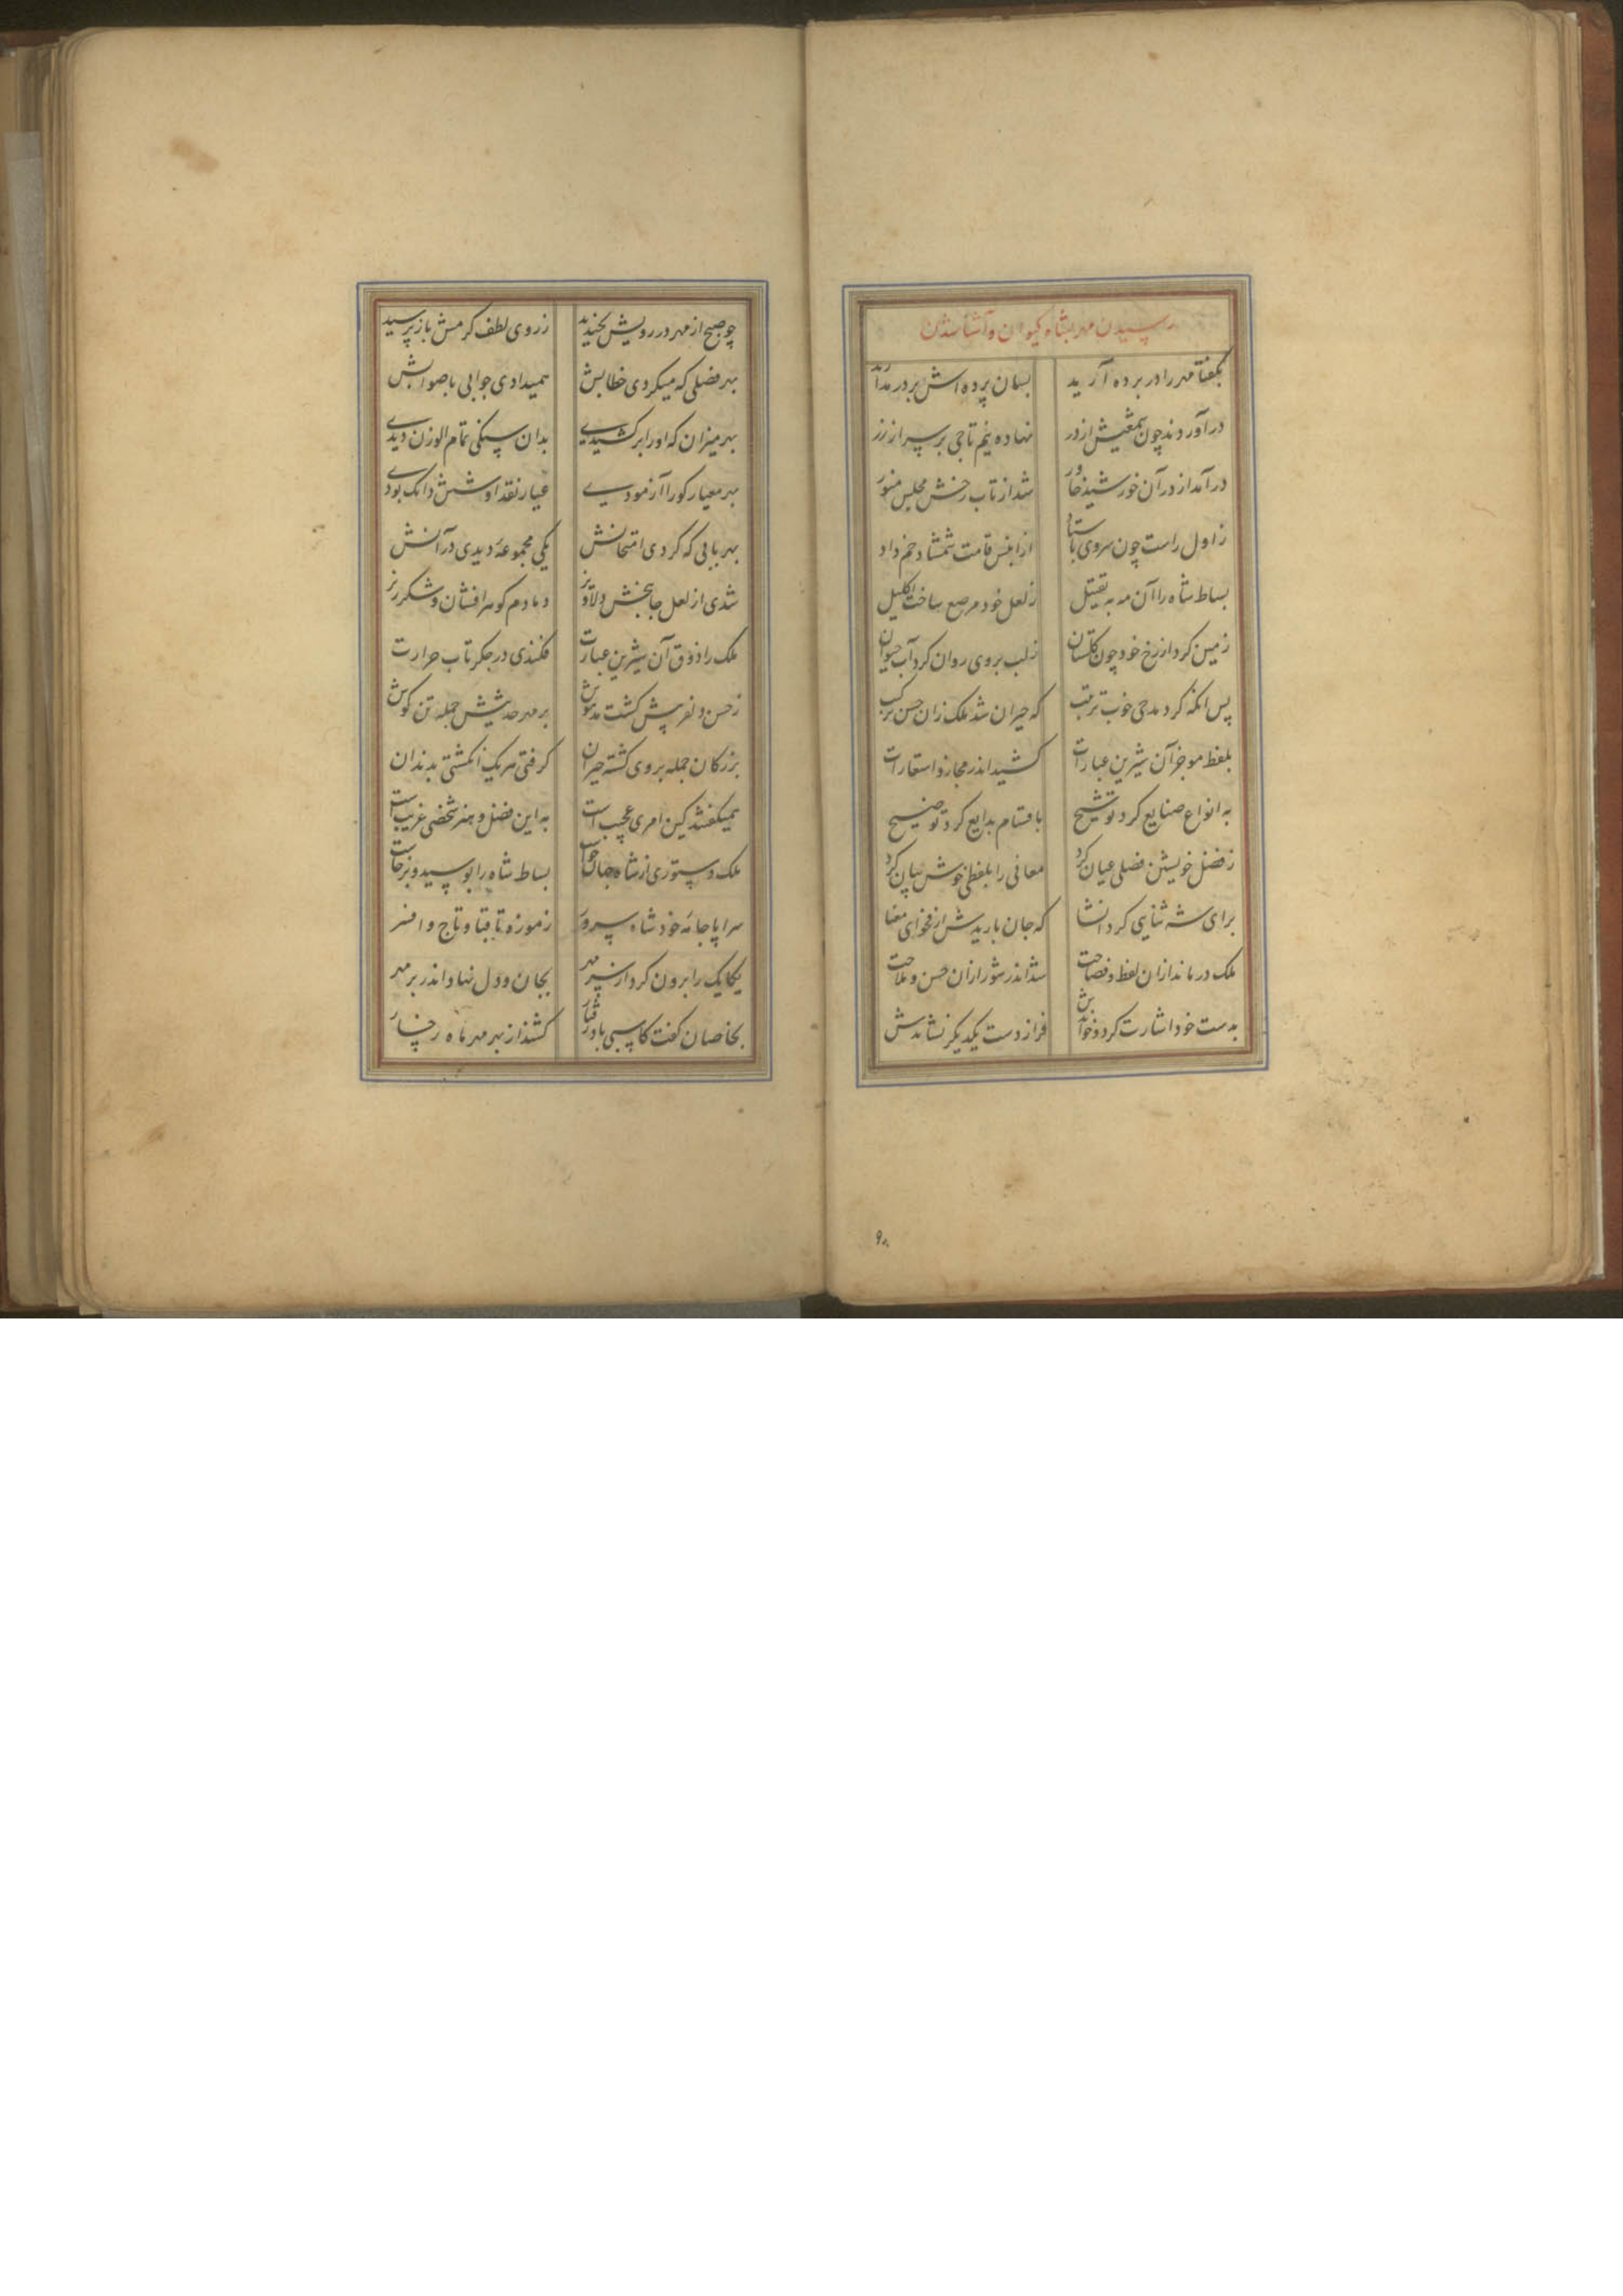 رسیدن مهر بشاه کیوان و آشنا شدن
بگفتا مهر را در پرده آرید بسان پرده‌اش بر در مدارید
درآوردند چون شمعیش از در نهاده نیم تاجی بر سر از زر
درآمد از در آن خورشید خاور شد از تاب رخش مجلس منور
ز اول راست چون سروی باستاد از آنپس قامت شمشاد خم داد
بساط شاه را آن مه به تقبیل ز لعل خود مرصع ساخت اکلیل
زمین کرد از رخ خود چون گلستان ز لب بر وی روان کرد آب حیوان
پس انگه کرد مدحی خوب ترتیب که حیران شد ملک زان حسن ترکیب
بلفظ موجز آن شیرین عبارات کشید اندر مجاز و استعارات
به انواع صنایع کرد توشیح باقسام بدایع کرد توضیح
ز فضل خویشتن فضلی عیان کرد معانی را بلفظی خوش بیان کرد
برای شه ثنایی کرد انشا که جان باریدش از فحوای معنا
ملک درماند ازان لفظ و فصاحت شد اندر شور ازان حسن و ملاحت
به دست خود اشارت کرد و خواندش فراز دست یکدیگر نشاندش
۹۰
چو صبح از مهر در رویش بخندید ز روی لطف گرمش باز پرسید
بهر فضلی که میکردی خطابش همیدادی جوابی باصوابش
بهر میزان که او را برکشیدی بدان سنگی تمام الوزن دیدی
بهر معیار کو را آزمودی عیار نقد او شش دانک بودی
بهر بابی که کردی امتحانش یکی مجموعه دیدی در آنش
شدی از لعل جانبخش دلاویز دمادم گوهرافشان و شکرریز
ملک را ذوق آن شیرین عبارت فکندی در جگر تاب حرارت
ز حسن دلفریبش گشت مدهوش بر مهر حدیثش جمله تن گوش
بزرگان جمله بر وی گشته حیران گرفتی هر یک انگشتی بدندان
همیگفتند کین امری عجیب است به این فضل و هنر شخصی غریب است
ملک دستوری از شاه جهان خواست بساط شاه را بوسید و برخاست
سراپا جامه خود شاه سرور ز موزه تا قبا و تاج و افسر
یکایک را برون کرد از سر مهر بجان و دل نهاد اندر بر مهر
بخاصان گفت کاسپی بادرفتار کشند از بهر مهر ماه رخسار